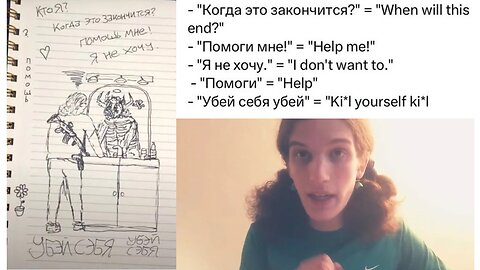 Кто Я?
Когда это закончится?
Помошь мне!
Я не хочу.
?
помощь
УБЭЙ СЭБЯ
УБЭЙ
СЭБЯ
- "Когда это закончится?" = "When will this
end?"
- "Помоги мне!" = "Help me!"
- "Я не хочу." = "I don't want to."
- "Помоги" = "Help"
- "Убей себя убей" = "Ki*l yourself ki*l